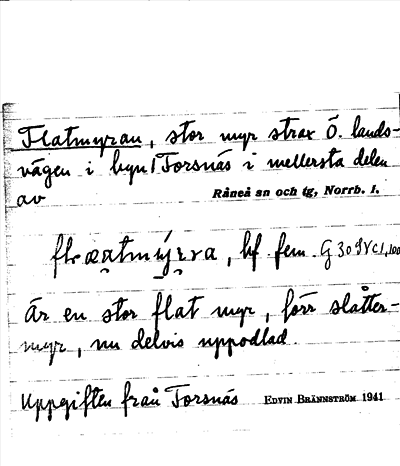 Flatmyran, stor myr strax Ö. lands-
vägen i byn Torsnäs i mellersta delen
av Råneå sn och tg, Norrb. l.
bf. fem.
Är en stor flat myr, förr slåtter-
myr, nu delvis uppodlad.
Uppgiften från Torsnäs EDVIN BRÄNNSTRÖM 1941